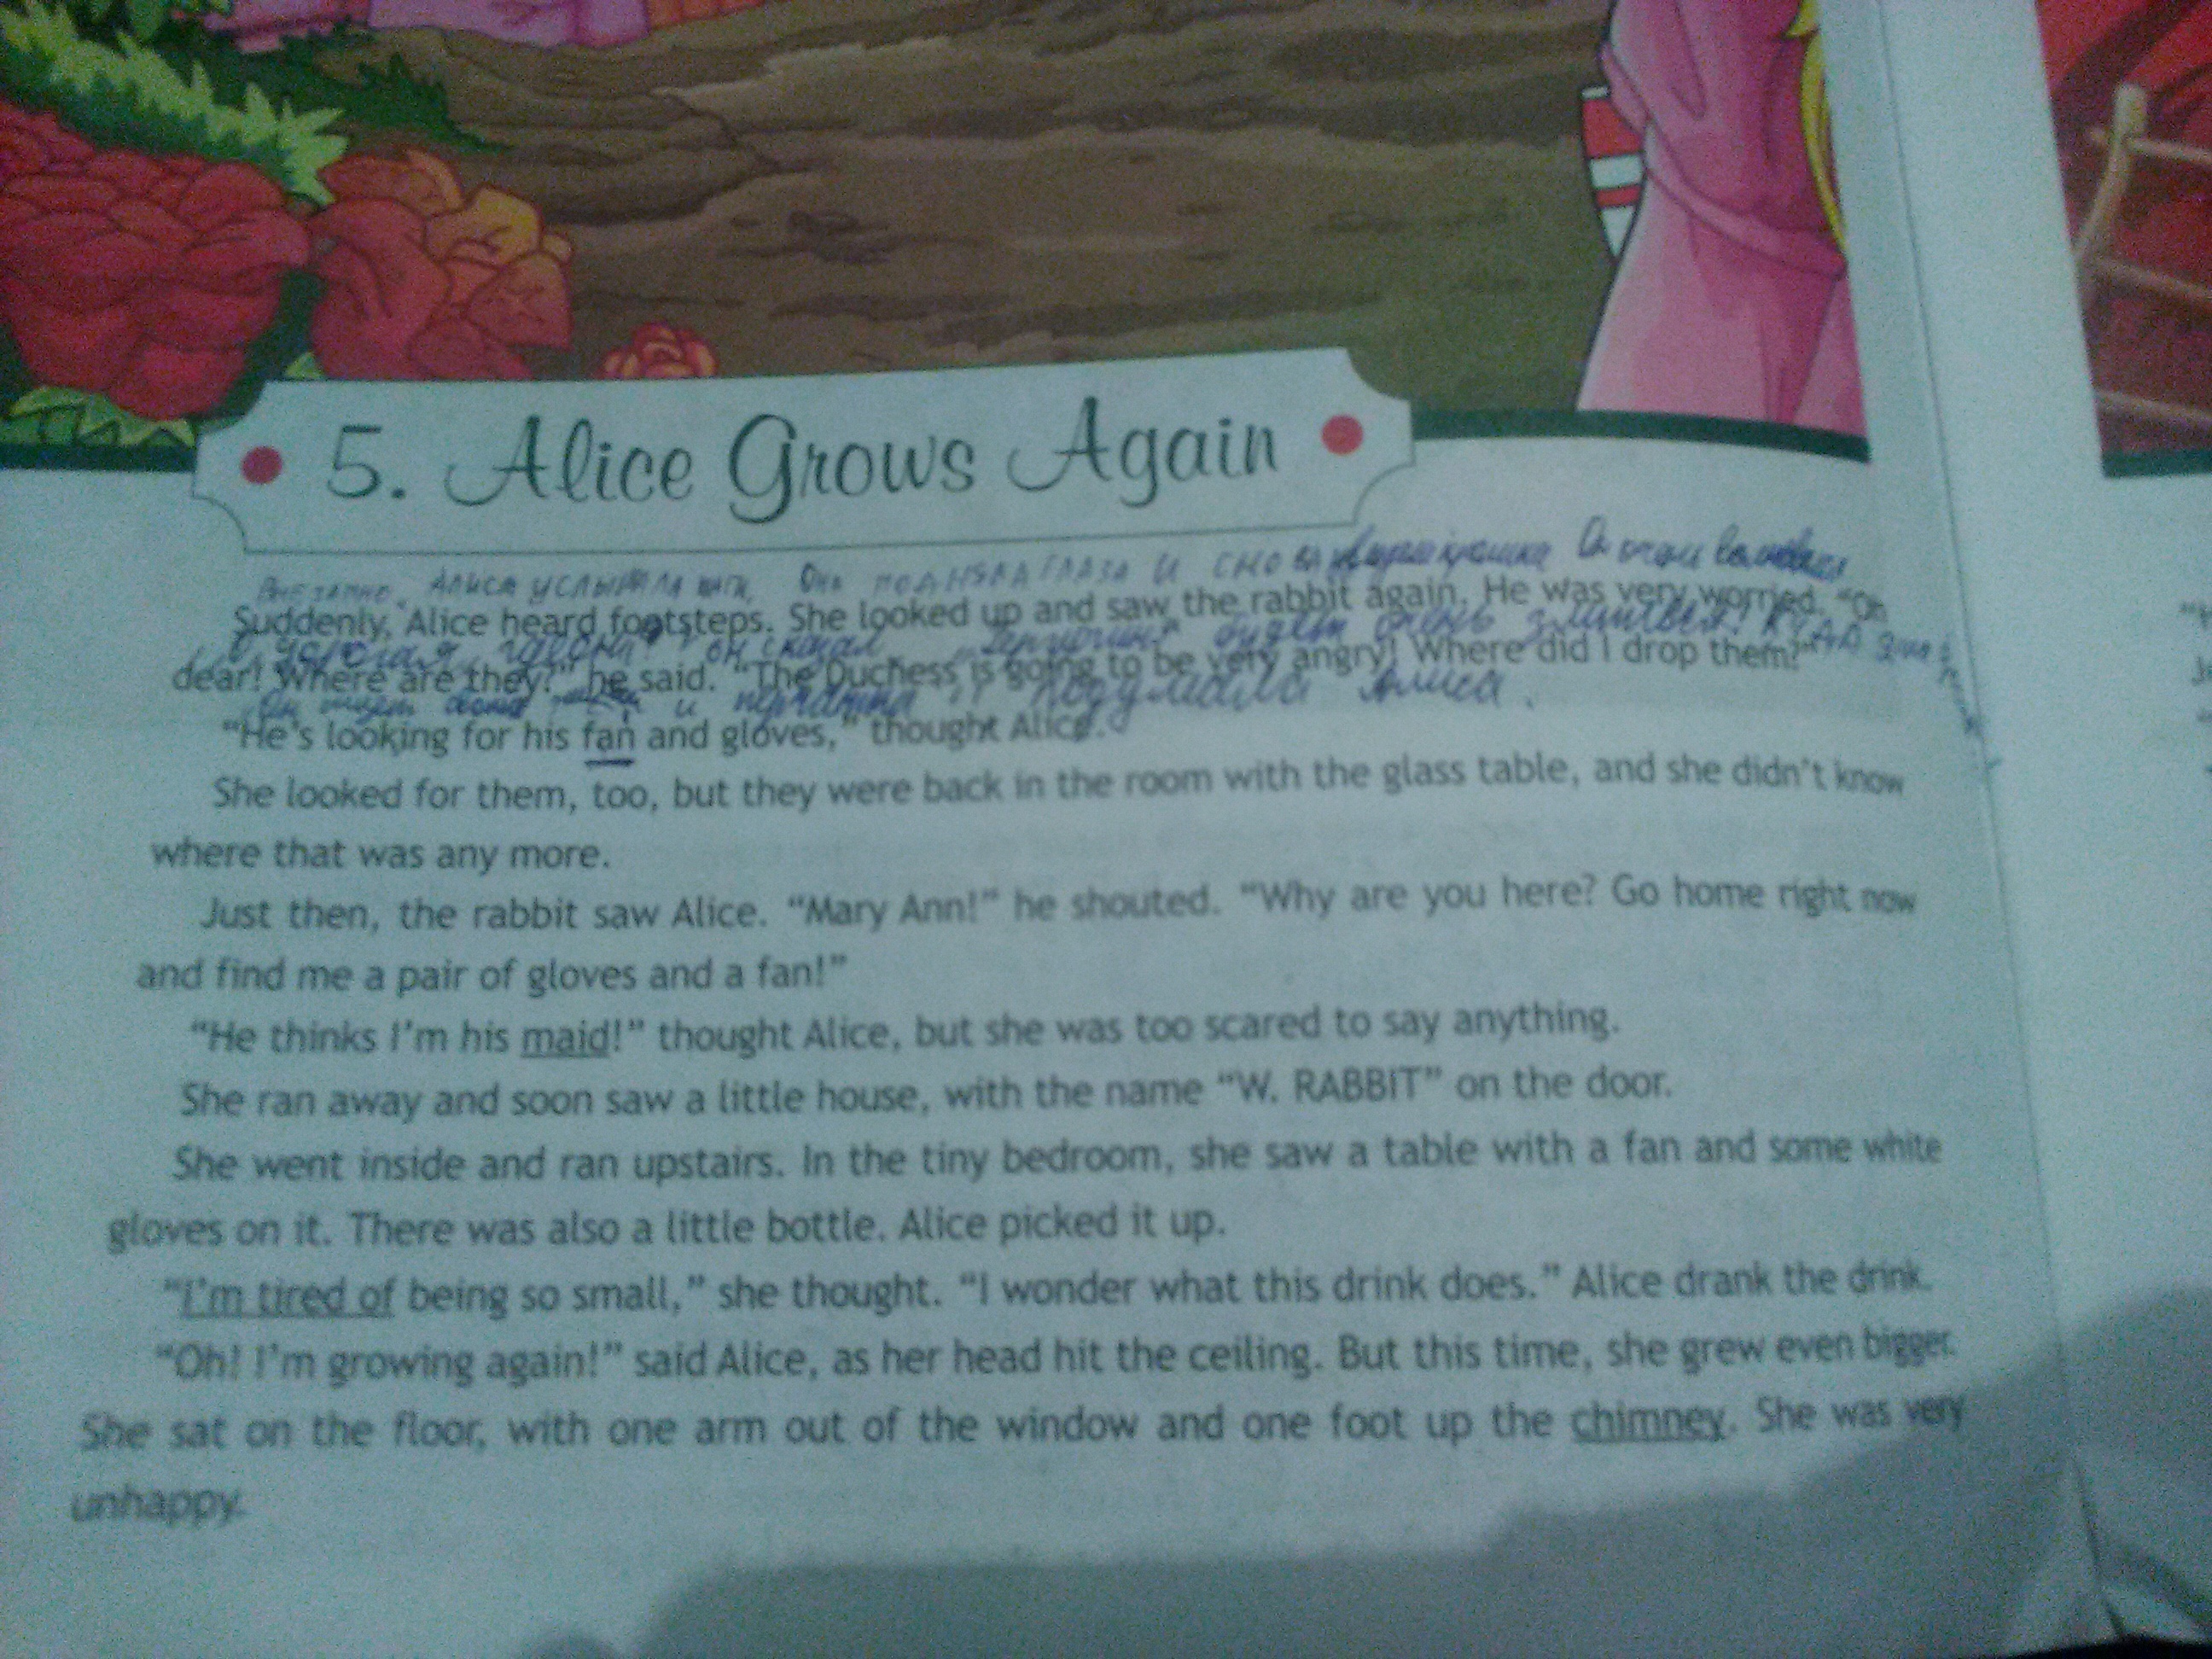 5. Alice Grows Again
Внезапно, Алиса услышала шаги. Она подняла глаза и снова
Suddenly, Alice heard footsteps. She looked up and saw the rabbit again. He was very worried. "Oh
он сказал будет очень
dear! Where are they?" he said. "The Duchess is going to be very angry! Where did I drop them?"
и перчатки подумала Алиса.
"He's looking for his fan and gloves," thought Alice.
She looked for them, too, but they were back in the room with the glass table, and she didn't know
where that was any more.
Just then, the rabbit saw Alice. "Mary Ann!" he shouted. "Why are you here? Go home right now
and find me a pair of gloves and a fan!"
"He thinks I'm his maid!" thought Alice, but she was too scared to say anything.
She ran away and soon saw a little house, with the name "W. RABBIT" on the door.
She went inside and ran upstairs. In the tiny bedroom, she saw a table with a fan and some white
gloves on it. There was also a little bottle. Alice picked it up.
"I'm tired of being so small," she thought. "I wonder what this drink does." Alice drank the drink.
"Oh! I'm growing again!" said Alice, as her head hit the ceiling. But this time, she grew even bigger.
She sat on the floor, with one arm out of the window and one foot up the chimney. She was very
unhappy.